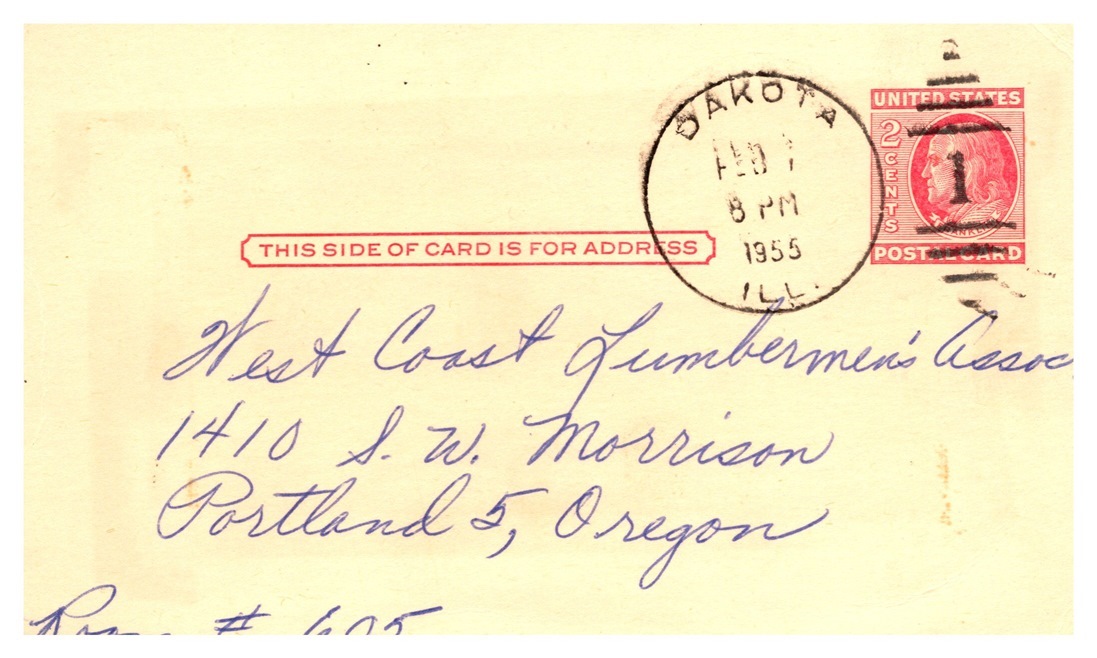 DAKOTA
FEB 7
8 PM
1955
ILL.
UNITED STATES
2 CENTS
1
FRANKLIN
POSTAL CARD
THIS SIDE OF CARD IS FOR ADDRESS
West Coast Lumbermen's Assoc
1410 S. W. Morrison
Portland 5, Oregon
Room # 605